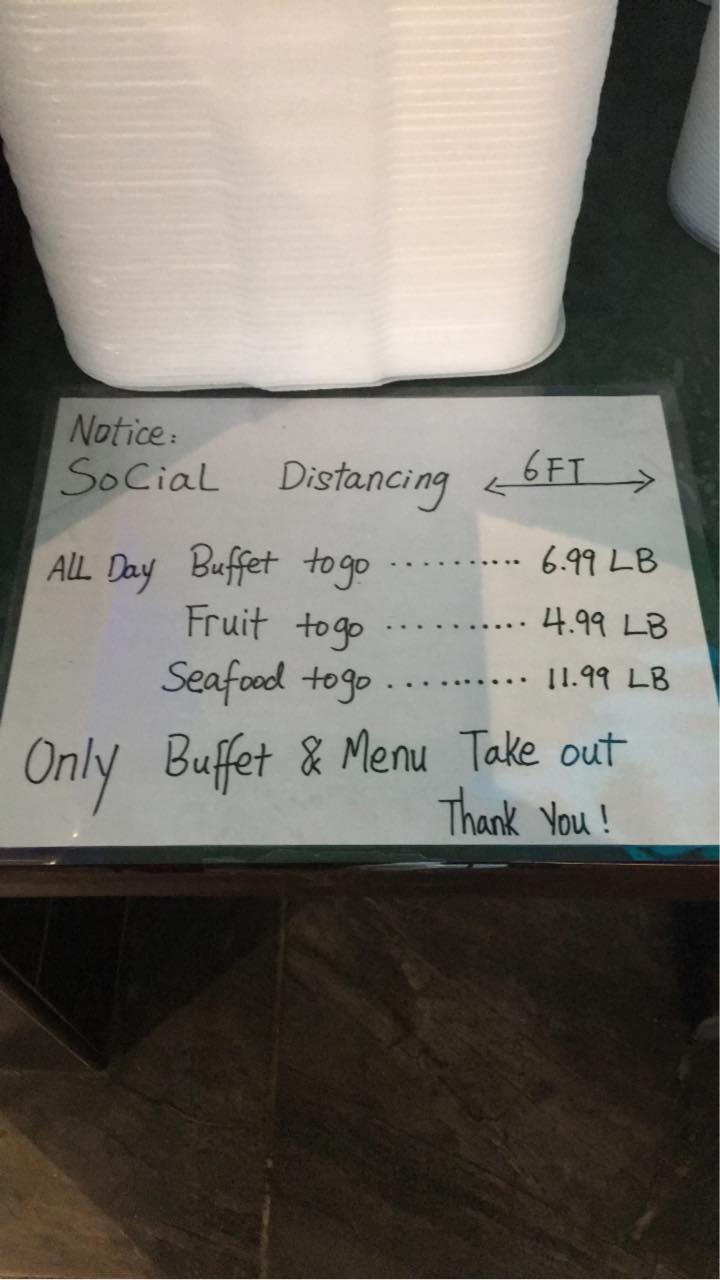 Notice:
Social Distancing 6FT
ALL Day Buffet togo .......... 6.99 LB
Fruit togo .......... 4.99 LB
Seafood togo .......... 11.99 LB
Only Buffet & Menu Take out
Thank You!